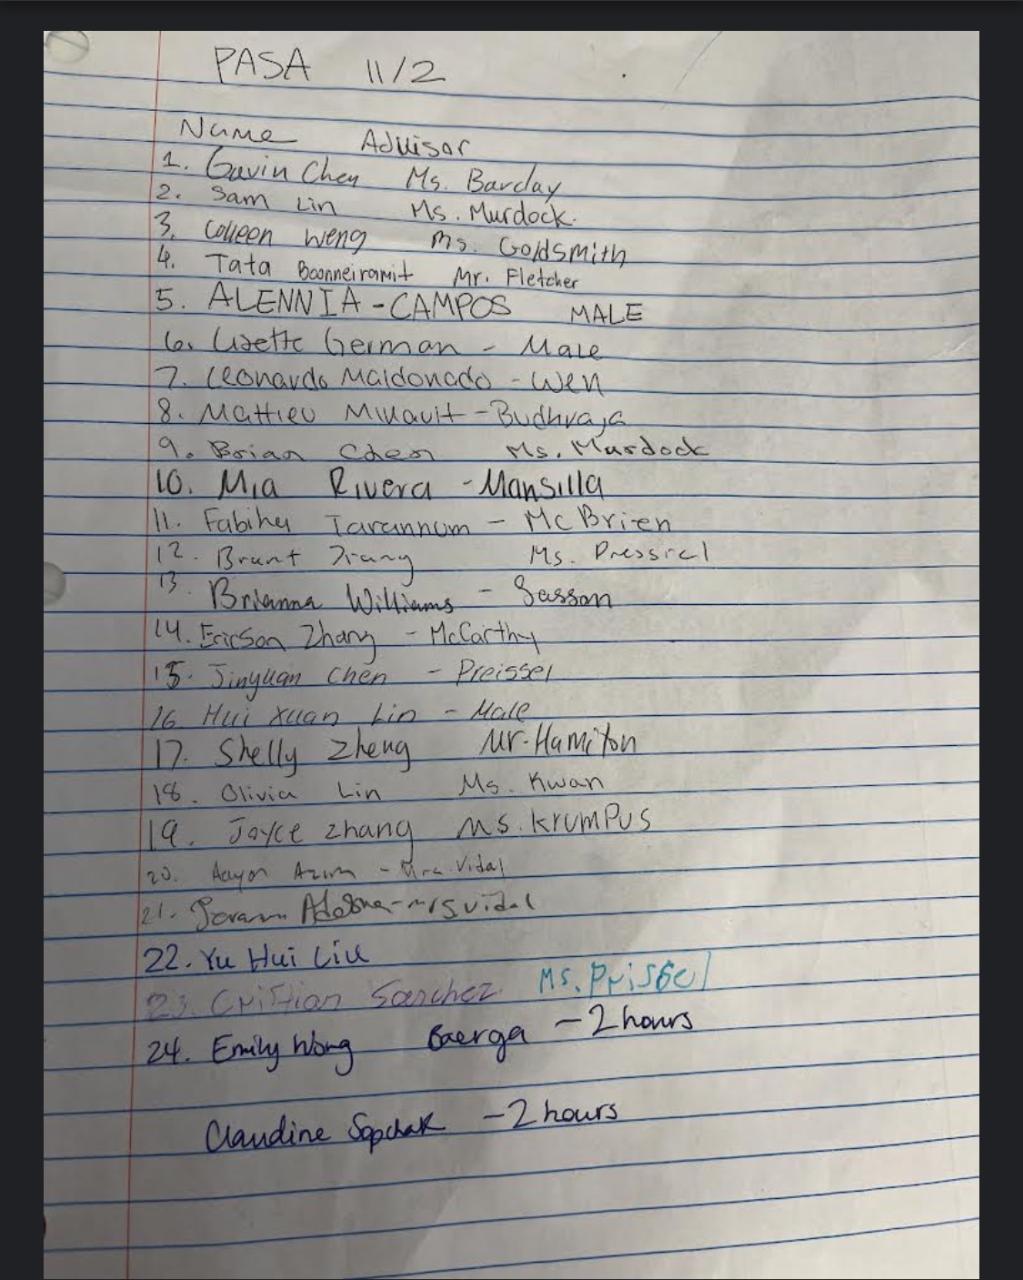 PASA 11/2
Name Advisor
1. Gavin Chen Ms. Barclay
2. Sam Lin Ms. Murdock.
3. Colleen Weng Ms. Goldsmith
4. Tata Boonneiramit Mr. Fletcher
5. ALENNIA-CAMPOS MALE
6. Lizette German - Male
7. Leonardo Maldonado - Wen
8. Mathieu - Budhraja
9. Brian Chen Ms. Murdock
10. Mia Rivera - Mansilla
11. Fabiha Tarannum - McBrien
12. Ms.
13. Brianna Williams - Sasson
14. Ericson Zhang - McCarthy
15. Jinyuan Chen - Preissel
16 Hui Xuan Lin - Male
17. Shelly Zheng Mr. Hamilton
18. Olivia Lin Ms. Kwan
19. Joyce Zhang Ms. Krumpus
20. - Vidal
21. - Vidal
22. Yu Hui Liu
23. Cristian Sanchez Ms.
24. Emily Wong Baerga - 2 hours
Claudine - 2 hours